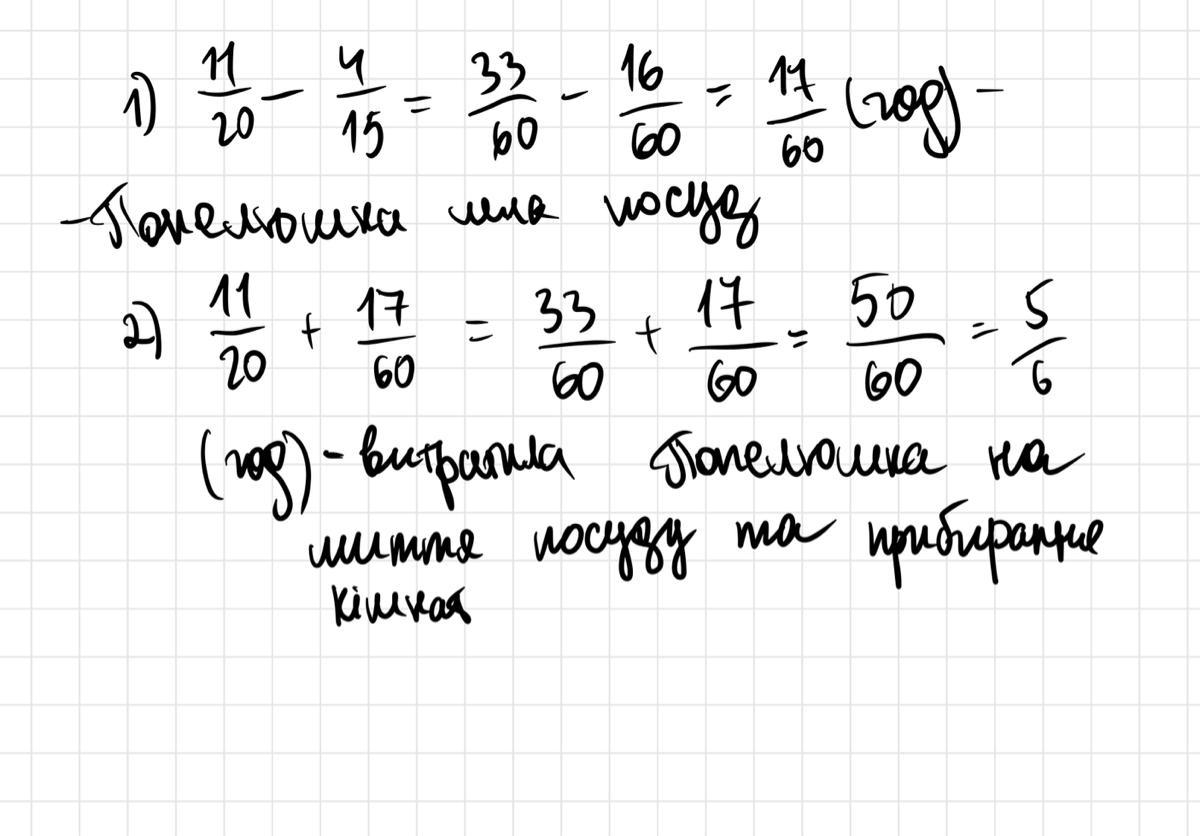 1) 11/20 - 4/15 = 33/60 - 16/60 = 17/60 (год) -
- Попелюшка мила посуд
2) 11/20 + 17/60 = 33/60 + 17/60 = 50/60 = 5/6
(год) - витратила Попелюшка на
миття посуду та прибирання
кімнат